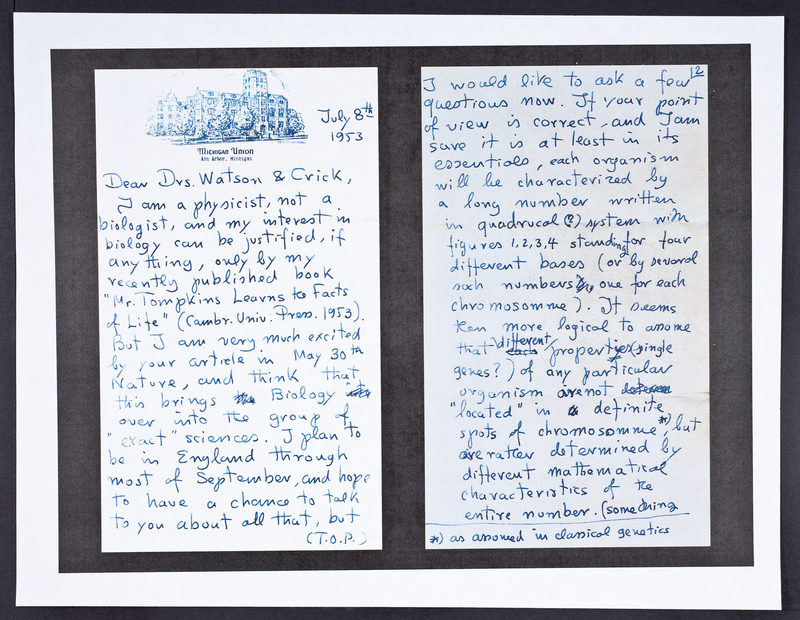 July 8th
1953
MICHIGAN UNION
Ann Arbor, Michigan
Dear Drs. Watson & Crick,
I am a physicist, not a
biologist, and my interest in
biology can be justified, if
any thing, only by my
recently published book
"Mr. Tompkins Learns the Facts
of Life" (Cambr. Univ. Press. 1953).
But I am very much excited
by your article in May 30th
Nature, and think that
this brings Biology
over into the group of
"exact" sciences. I plan to
be in England through
most of September, and hope
to have a chance to talk
to you about all that, but
(T.O.P.)
12
I would like to ask a few
questions now. If your point
of view is correct, and I am
sure it is at least in its
essentials, each organism
will be characterized by
a long number written
in quadrucal (?) system with
figures 1,2,3,4 standing for four
different bases (or by several
such numbers, one for each
chromosomme). It seems
then more logical to assume
that different each properties (single
genes?) of any particular
organism are not
"located" in definite
spots of chromosomme *), but
are rather determined by
different mathematical
characteristics of the
entire number. (something
*) as assumed in classical genetics